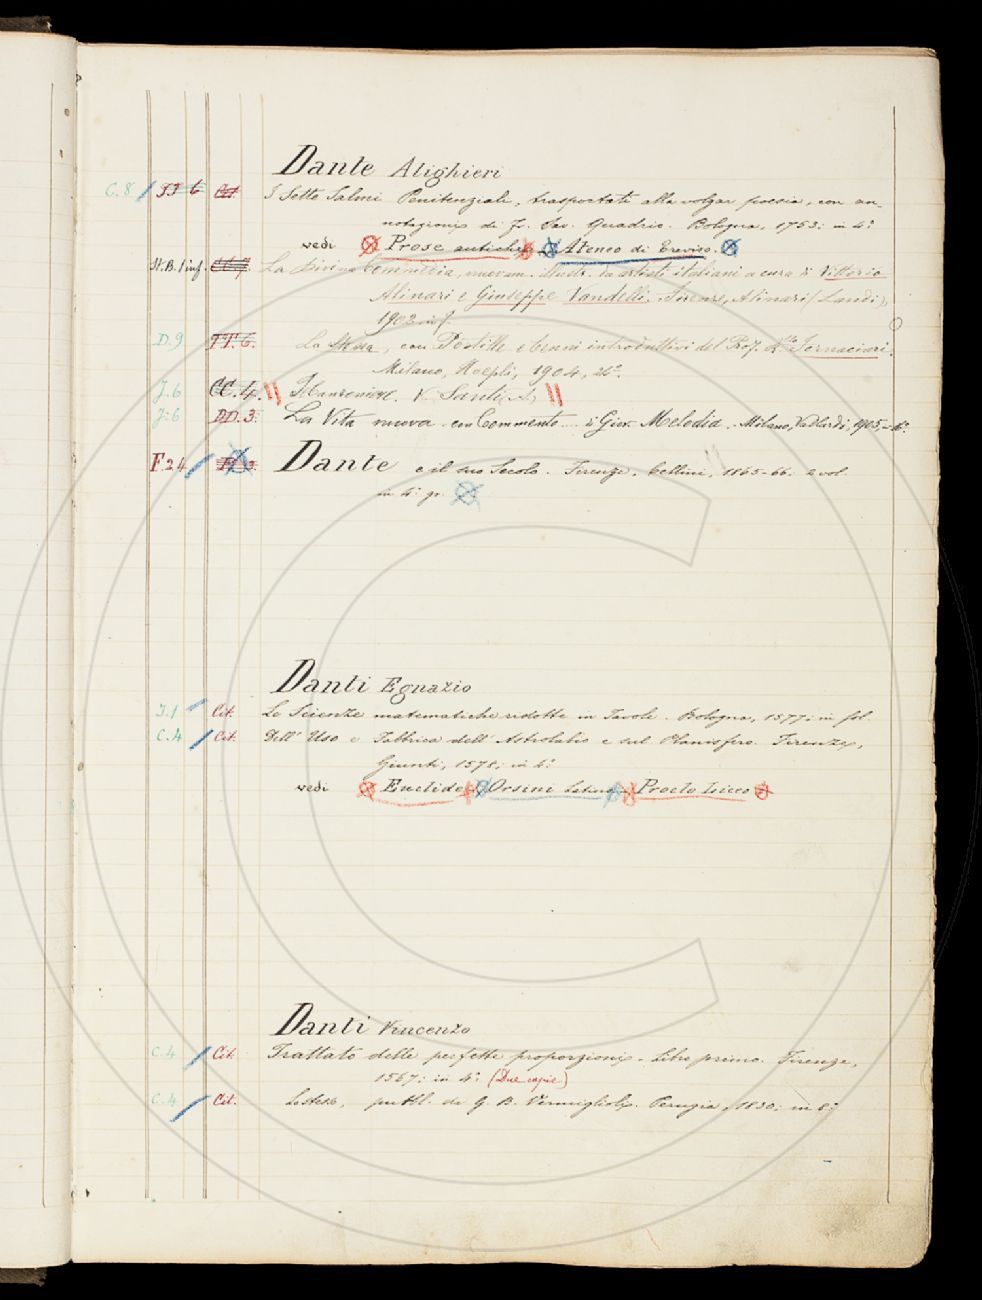 Dante Alighieri
C.8 I Sette Salmi Penitenziali, trasportati alla volgar poesia, con an-
notazioni di Fr. Sav. Quadrio. Bologna, 1753; in 4°
vedi Prose antiche - Ateneo di Treviso.
St.B./inf. CC.7. La Divina Commedia, nuovam. illustr. da artisti italiani a cura di Vittorio
Alinari e Giuseppe Vandelli. Firenze, Alinari (Landi),
1902. inf.
D.9 La Stessa, con Postille e Cenni introduttivi del Prof. Fornaciari.
Milano, Hoepli, 1904, 24°.
J.6 CC.4. V. Santi, A.
J.6 DD.3. La Vita nuova con Commento di Giov. Melodia. Milano, Vallardi, 1905, 16°.
F.24 Dante e il suo Secolo. Firenze, Cellini, 1865-66. 2 vol
in 4° gr.
Danti Egnazio
J.1 Cit. Le Scienze matematiche ridotte in Tavole. Bologna, 1577; in fol.
C.4 Cit. Dell' Uso e Fabbrica dell' Astrolabio e del Planisfero. Firenze,
Giunti, 1578; in 4°
vedi Euclide - Orsini Latino - Proclo Liceo
Danti Vincenzo
C.4 Cit. Trattato delle perfette proporzioni. Libro primo. Firenze,
1567; in 4° (Due copie)
C.4 Cit. Lo stesso, pubbl. da G. B. Vermiglioli. Perugia, 1830; in 8°